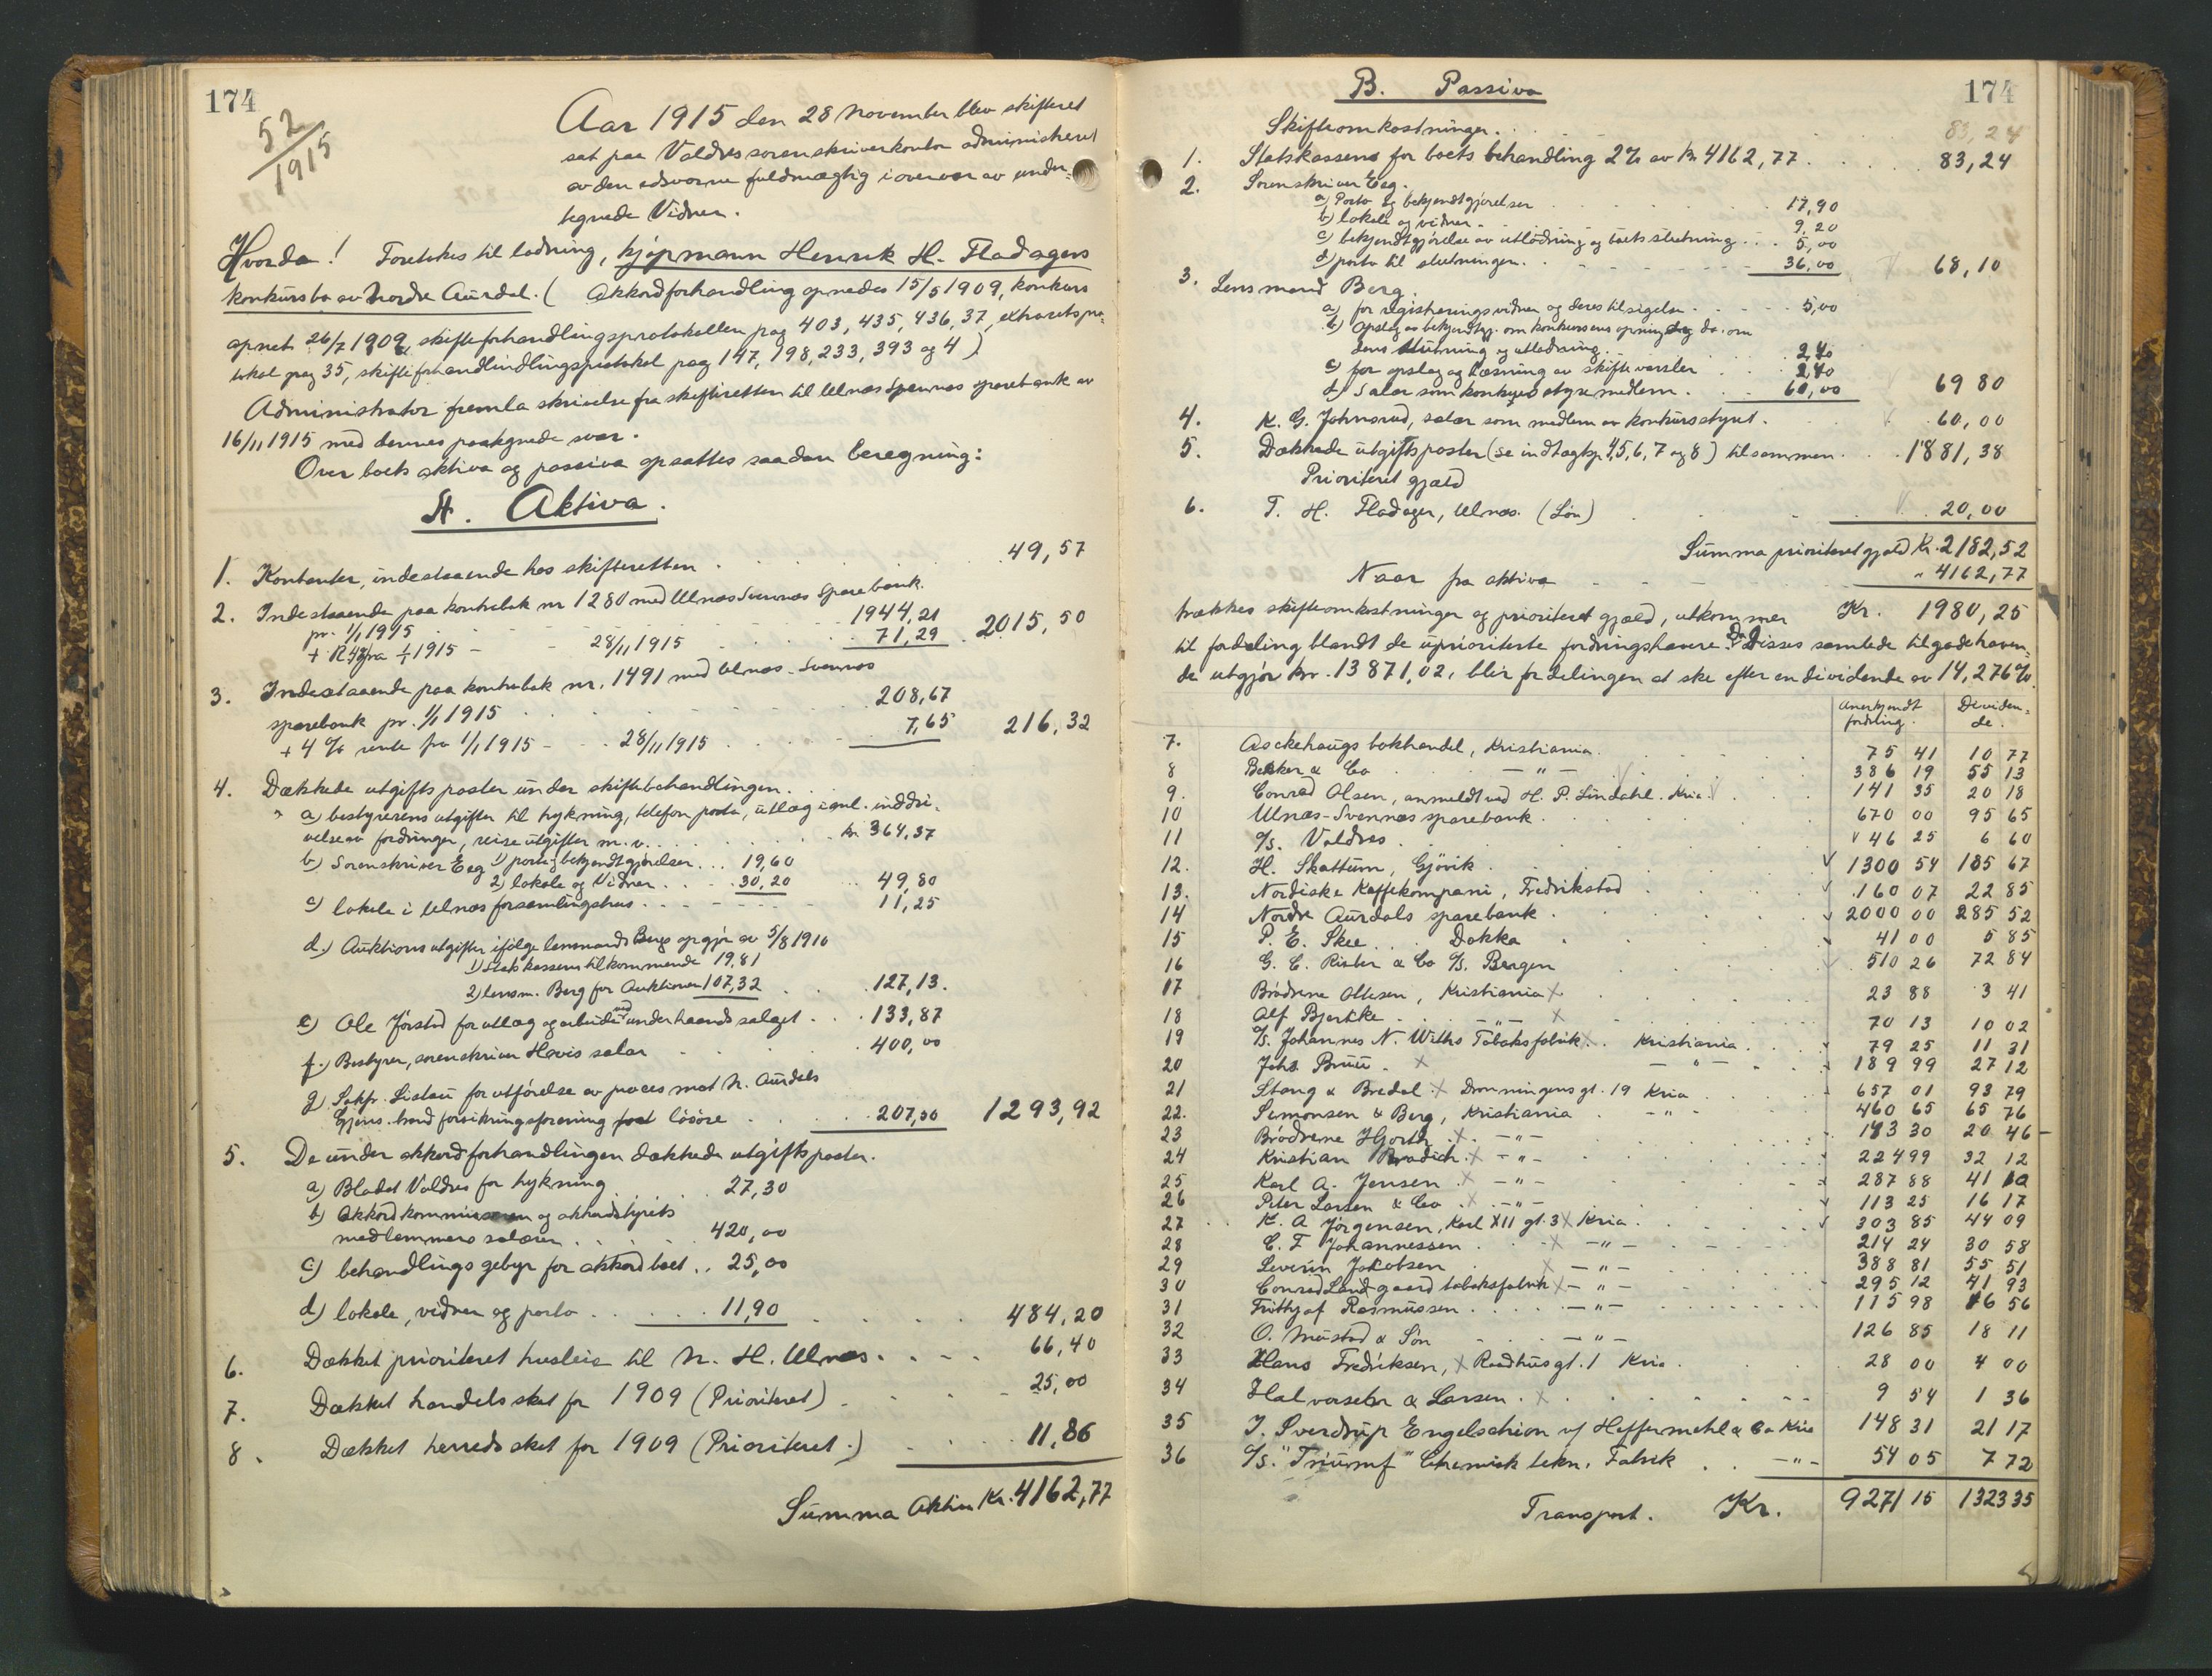 174
52/1915
Aar 1915 den 28 november blev skifteret
sat paa Valdres sorenskriverkontor administreret
av den edsvorne fuldmægtig i overvær av under-
tegnede Vidner.
Hvorda! Foretokes til lodning, kjøpmann Henrik H. Fladagers
konkursbo av Nordre Aurdal. (Akkordforhandling åpnedes 15/5 1909, konkurs
apnet 26/7 1909, skifteforhandlingsprotokollen pag 403, 435, 436, 37, extraretspro-
tokol pag 35, skifteforhandlindlingsprotokol pag 147, 198, 233, 393 og 4)
Administrator fremla skrivelse fra skifteretten til Ulnes Svennes sparebank av
16/11 1915 med dennes paategnede svar.
Over boets aktiva og passiva opsattes saadan beregning:
A. Aktiva.
1. Kontanter, indestaaende hos skifteretten . 49,57
2. Indestaaende paa kontrabok nr 1280 med Ulnes Svennes Sparebank
pr. 1/1 1915 1944,21
+ fra 1/1 1915 - 28/11 1915 71,29 2015,50
3. Indestaaende paa kontrabok nr. 1491 med Ulnes-Svennes
sparebank pr. 1/1 1915 208,67
+ 4 % rente fra 1/1 1915 - 28/11 1915 7,65 216,32
4. Dækkede utgiftsposter under skiftebehandlingen.
a) bestyrerens utgifter til trykning, telefon porto, utlæg i anl. inddri-
velse av fordringer, reiseutgifter m.v. kr 364,37
b) Sorenskriver Eeg 1) porto og bekjendtgjørelser ... 19,60
2) lokale og Vidner . . 30,20 49,80
c) lokale i Ulnes forsamlingshus . 11,25
d.) Auktionsutgifter ifølge lensmand Bergs opgjør av 5/8 1910
1) Statskassens tilkommende 19,81
2) lensm. Berg for Auktionen 107,32 127,13.
e) Ole Jørstad for utlæg og arbeide ved underhaandssalget . . 133,87
f.) Bestyrer, sorenskriver Hovis salær 400,00
g) Sakfr. Lislau for utførelse av proces mot N. Aurdals
Gjens. brandforsikringsforening løsøre . 207,50 1293,92
5. De under akkordforhandlingen dækkede utgiftsposter.
a) Bladet Valdres for trykning 27,30
b) Akkordkommissæren og akkordstyrets
medlemmers salærer . . 420,00
c) behandlingsgebyr for akkordboet .. 25,00
d) lokale, vidner og porto . . 11,90 484,20
6. Dækket prioriteret husleie til N. H. Ulnes. 66,40
7. Dækket handelsskat for 1909 (Prioriteret) 25,00
8. Dækket herredsskat for 1909 (Prioriteret.) 11,86
Summa Aktiva Kr. 4162,77
174
B. Passiva
Skifteomkostninger. 83,24
1. Statskassens for boets behandling 2% av kr 4162,77 . . . 83,24
2. Sorenskriver Eeg.
a) Porto og bekjendtgjørelser 17,90
b) lokale og vidner 9,20
c) bekjendtgjørelse av utlodning og boets slutning . . . 5,00
d) porto til slutningen. 36,00 68,10
3. Lensmand Berg.
a) for registreringsvidner og deres tilsigelse . 5,00
b) opslag av bekjendtgj. om konkursens åpning og do. om
dens slutning og utlodning. 2,40
c) for opslag og læsning av skiftevarsler 2,40
d) Salær som konkursstyremedlem. 60,00 69 80
4. K. G. Johnsrud, salær som medlem av konkursstyret. 60,00
5. Dækkede utgiftsposter (se indtægtsp. 4, 5, 6, 7 og 8) tilsammen . 1881,38
Prioriteret gjæld
6. T. H. Fladager, Ulnes. (Løn) 20,00
Summa prioriteret gjæld Kr. 2182,52
Naar fra aktiva " 4162,77
trækkes skifteomkostninger og prioriteret gjæld, utkommer Kr. 1980,25
til fordeling blandt de uprioriterte fordringshavere. Da Disses samlede tilgodehaven-
de utgjør kr. 13871,02, blir fordelingen at ske efter en dividende av 14,276%.
Anerkjendt fordring. Dividen-de.
7. Aschehougs bokhandel, Kristiania. 75 41 10 77
8 Bekker & Co — " — 386 19 55 13
9. Conrad Olsen, anmeldt ved H. P. Lindahl. Kria. 141 35 20 18
10 Ulnes-Svennes sparebank. 670 00 95 65
11 A/s. Valdres . 46 25 6 60
12. H. Skattum, Gjövik 1300 54 185 67
13. Nordiske Kaffekompani, Fredrikstad 160 07 22 85
14 Nordre Aurdals sparebank . 2000 00 285 52
15 P. E. Skee . . Dokka 41 00 5 85
16 G. C. Rieber & Co A/s. Bergen 510 26 72 84
17 Brødrene Ottesen, Kristiania X 23 88 3 41
18 Alf Bjercke . — " — X 70 13 10 02
19 A/s. Johannes N. Withs Tobaksfabrik X. Kristiania. 79 25 11 31
20 Johs. Bruu. X — " — 189 99 27 12
21 Stang & Bredal. X Dronningensgt. 19 Kria 657 01 93 79
22. Simonsen & Berg, Kristiania — " — 460 65 65 76
23 Brødrene Hjorth X — " — 143 30 20 46
24 Kristian Bradich. X — " — 224 99 32 12
25 Karl A. Jensen X — " — 287 88 41 10
26 Peter Larsen & Co X — " — 113 25 16 17
27 K. A Jørgensen, Karl XII gt. 3 X Kria. 303 85 44 09
28 C. F Johannessen . X — " — 214 24 30 58
29 Severin Jakobsen X — " — 388 81 55 51
30 Conrad Landgaard tobaksfabrik X — " — 295 12 41 93
31 Frithjof Rasmussen. — " — 115 98 16 56
32 O. Mustad & Søn — " — 126 85 18 11
33 Hans Fredriksen, X Raadhusgt. 1 Kria 28 00 4 00
34 Halvorsen & Larsen. X 9 54 1 36
35 J. Sverdrup Engelschiøn v/ Heffermehl & Co Kria 148 31 21 17
36 A/s. "Triumf" Chemisk tekn. Fabrik . . — " — 54 05 7 72
Transport. Kr. 9271 15 1323 35